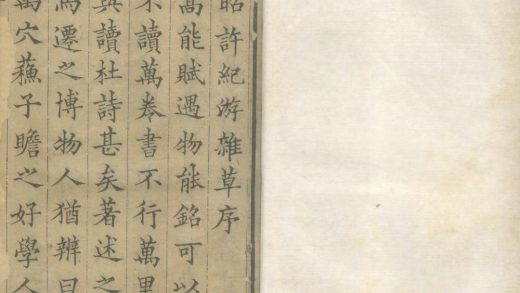 昭許紀游雜草序
高能賦遇物能銘可以
不讀萬卷書不行萬里
與讀杜詩甚矣著述之
馬遷之博物人猶辨曰
穴蘓子瞻之好學人